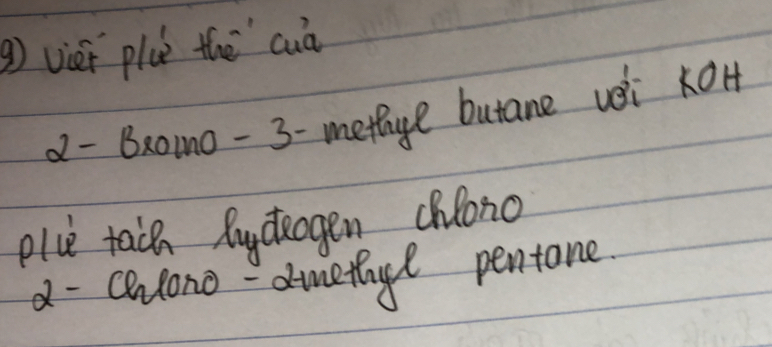 g) viết p/ứ thế của
2 - Bromo - 3 - methyl butane với KOH
p/ứ tách hydrogen chloro
2 - Chloro - 2methyl pentane.